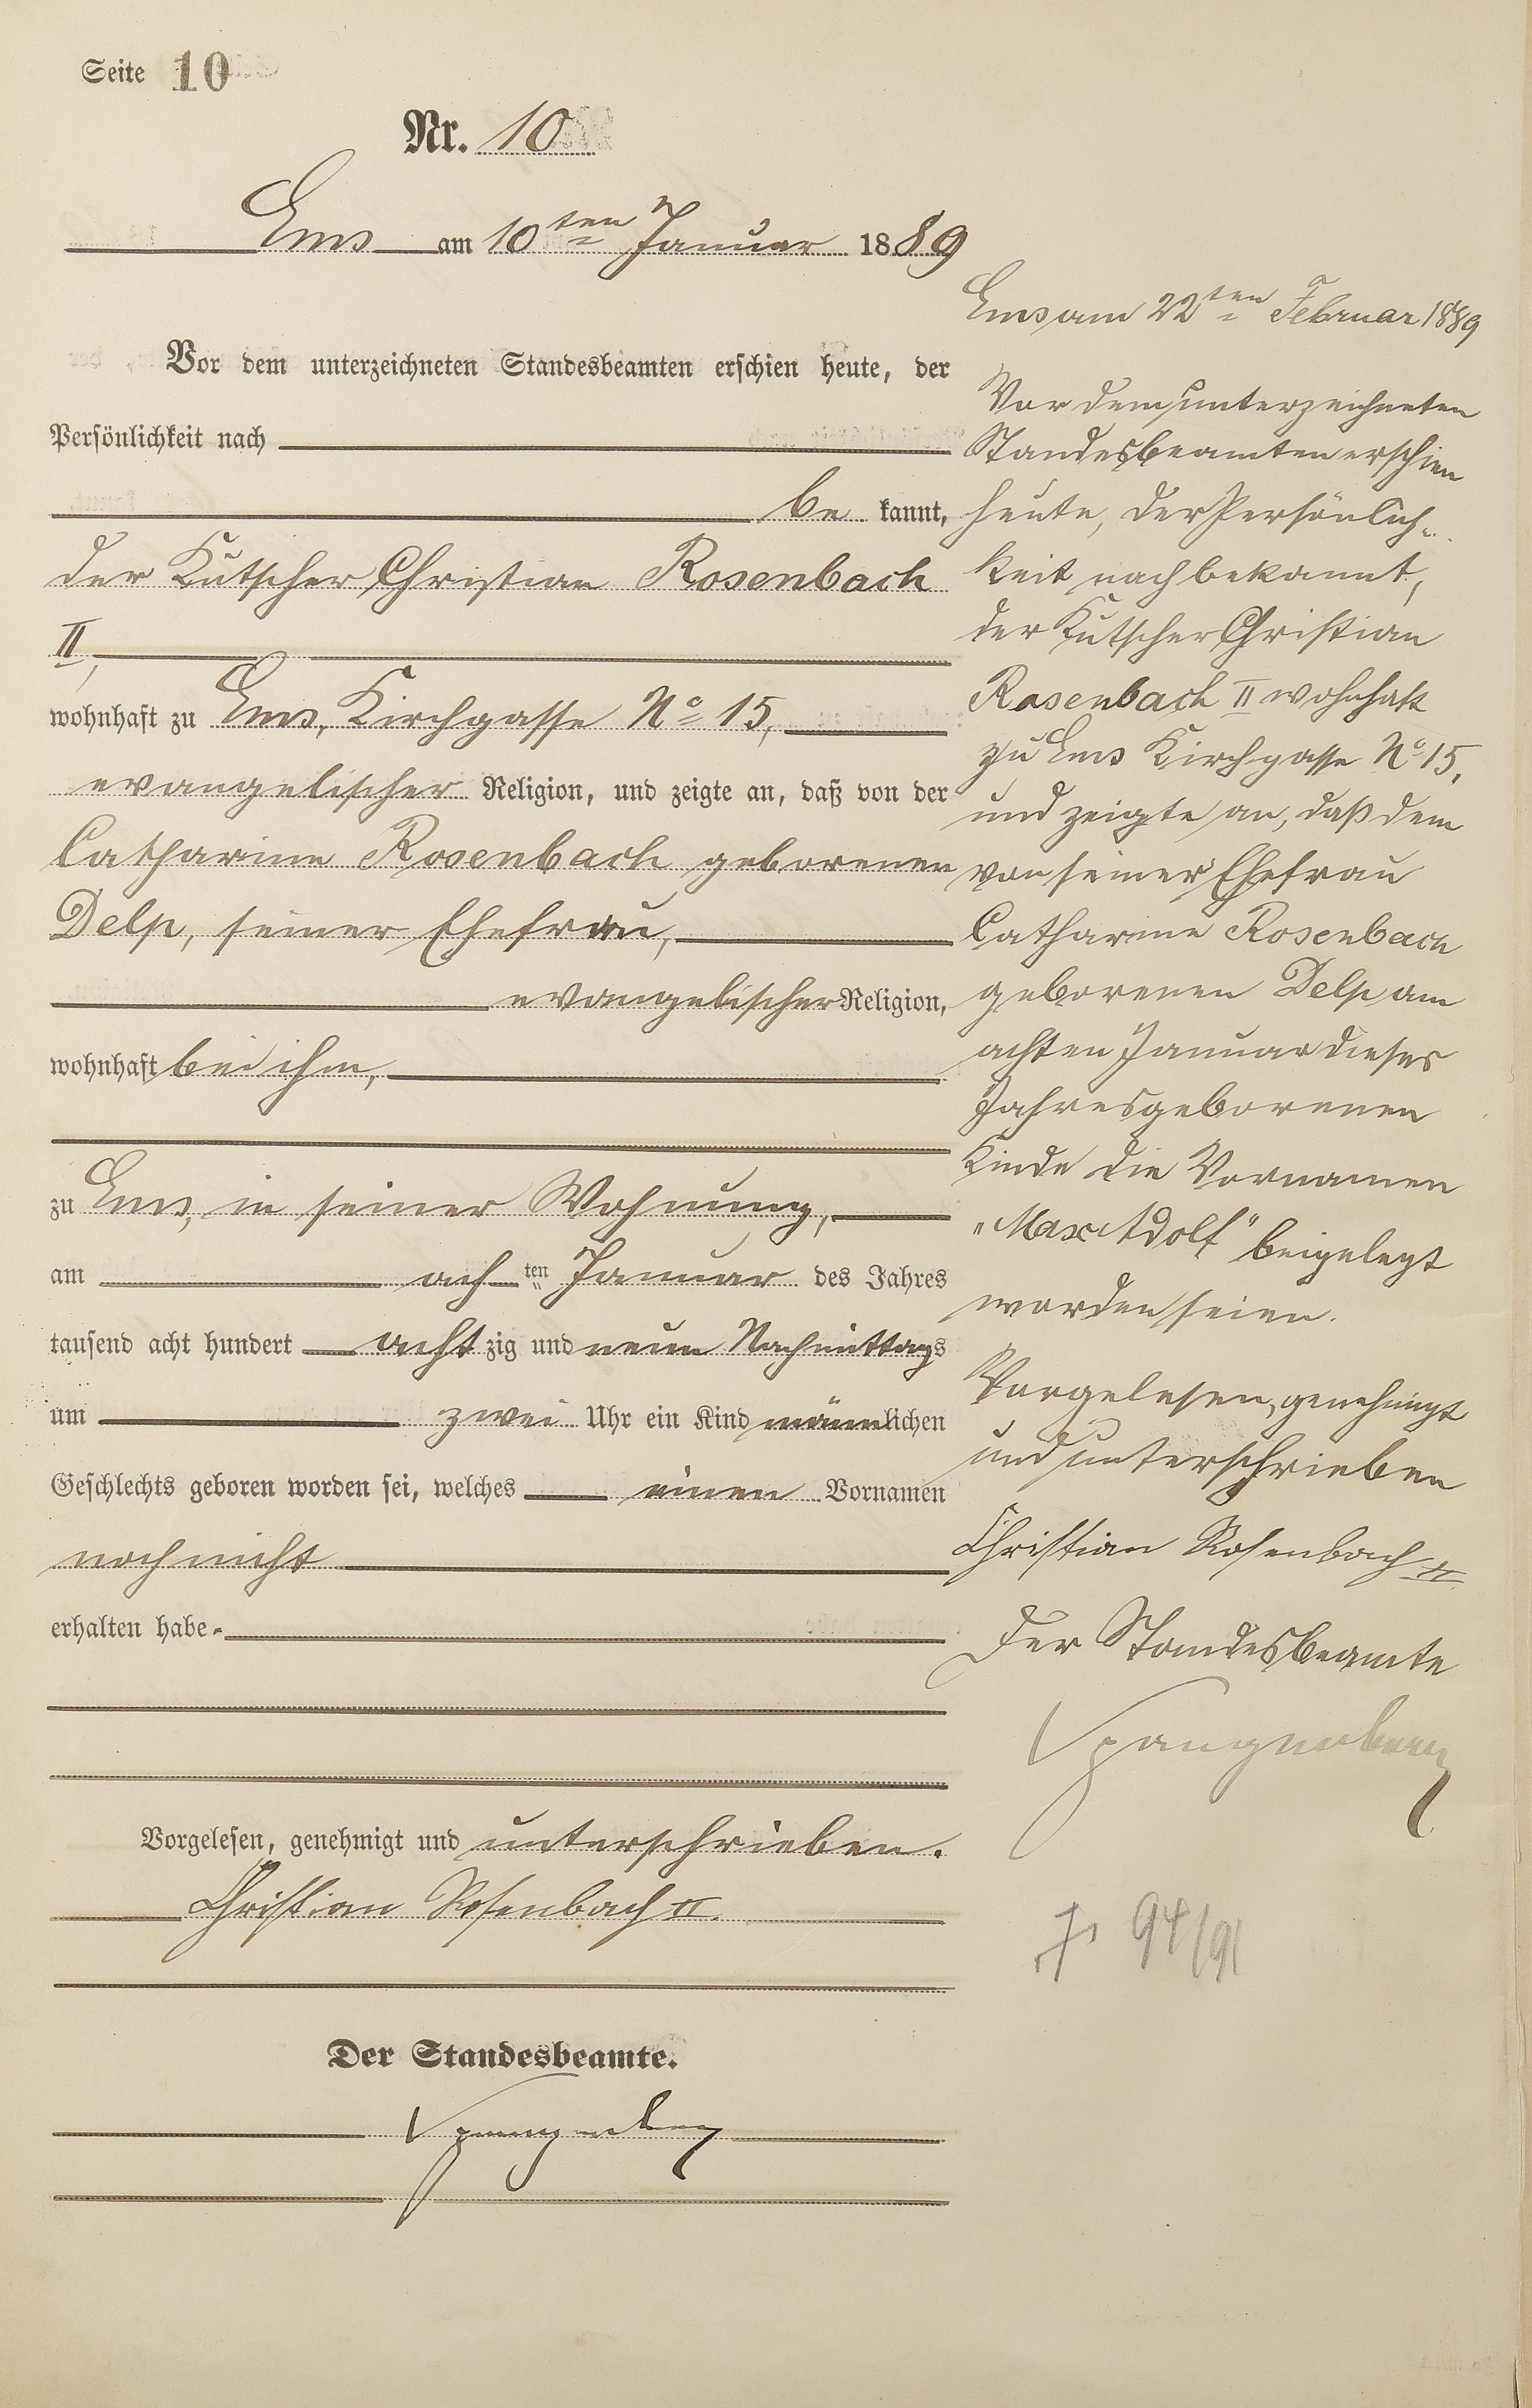 Seite 10
Nr. 10
Ems am 10ten Januar 1889
Vor dem unterzeichneten Standesbeamten erschien heute, der
Persönlichkeit nach
be kannt,
der Kutscher Christian Rosenbach
II,
wohnhaft zu Ems, Kirchgasse No 15,
evangelischer Religion, und zeigte an, daß von der
Catharine Rosenbach geborenen
Delp, seiner Ehefrau,
evangelischer Religion,
wohnhaft bei ihm,
zu Ems, in seiner Wohnung,
am ach ten Januar des Jahres
tausend acht hundert acht zig und neun Nachmittags
um zwei Uhr ein Kind männlichen
Geschlechts geboren worden sei, welches einen Vornamen
noch nicht
erhalten habe.
Vorgelesen, genehmigt und unterschrieben.
Christian Rosenbach II.
Der Standesbeamte.
Spangenberg
Ems am 22ten Februar 1889
Vor dem unterzeichneten
Standesbeamten erschien
heute, der Persönlich-
keit nach bekannt,
der Kutscher Christian
Rosenbach II wohnhaft
zu Ems Kirchgasse No 15,
und zeigte an, daß dem
von seiner Ehefrau
Catharine Rosenbach
geborenen Delp am
achten Januar dieses
Jahres geborenen
Kinde die Vornamen
„Max Adolf" beigelegt
worden seien.
Vorgelesen, genehmigt
und unterschrieben
Christian Rosenbach II
Der Standesbeamte
Spangenberg
94/91